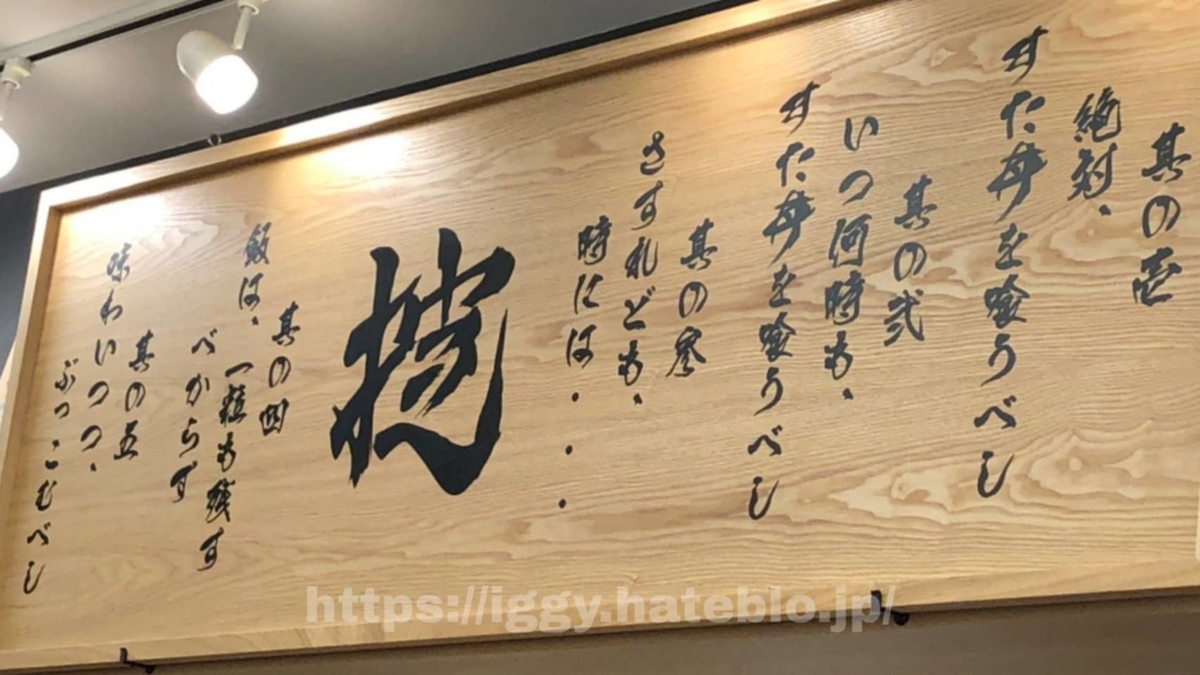 其の壱
絶対、
すた丼を喰うべし
其の弐
いつ何時も、
すた丼を喰うべし
其の参
さすれども、
時には・・・
掟
其の四
飯は、一粒も残す
べからず
其の五
味わいつつ、
ぶっこむべし
https://iggy.hateblo.jp/